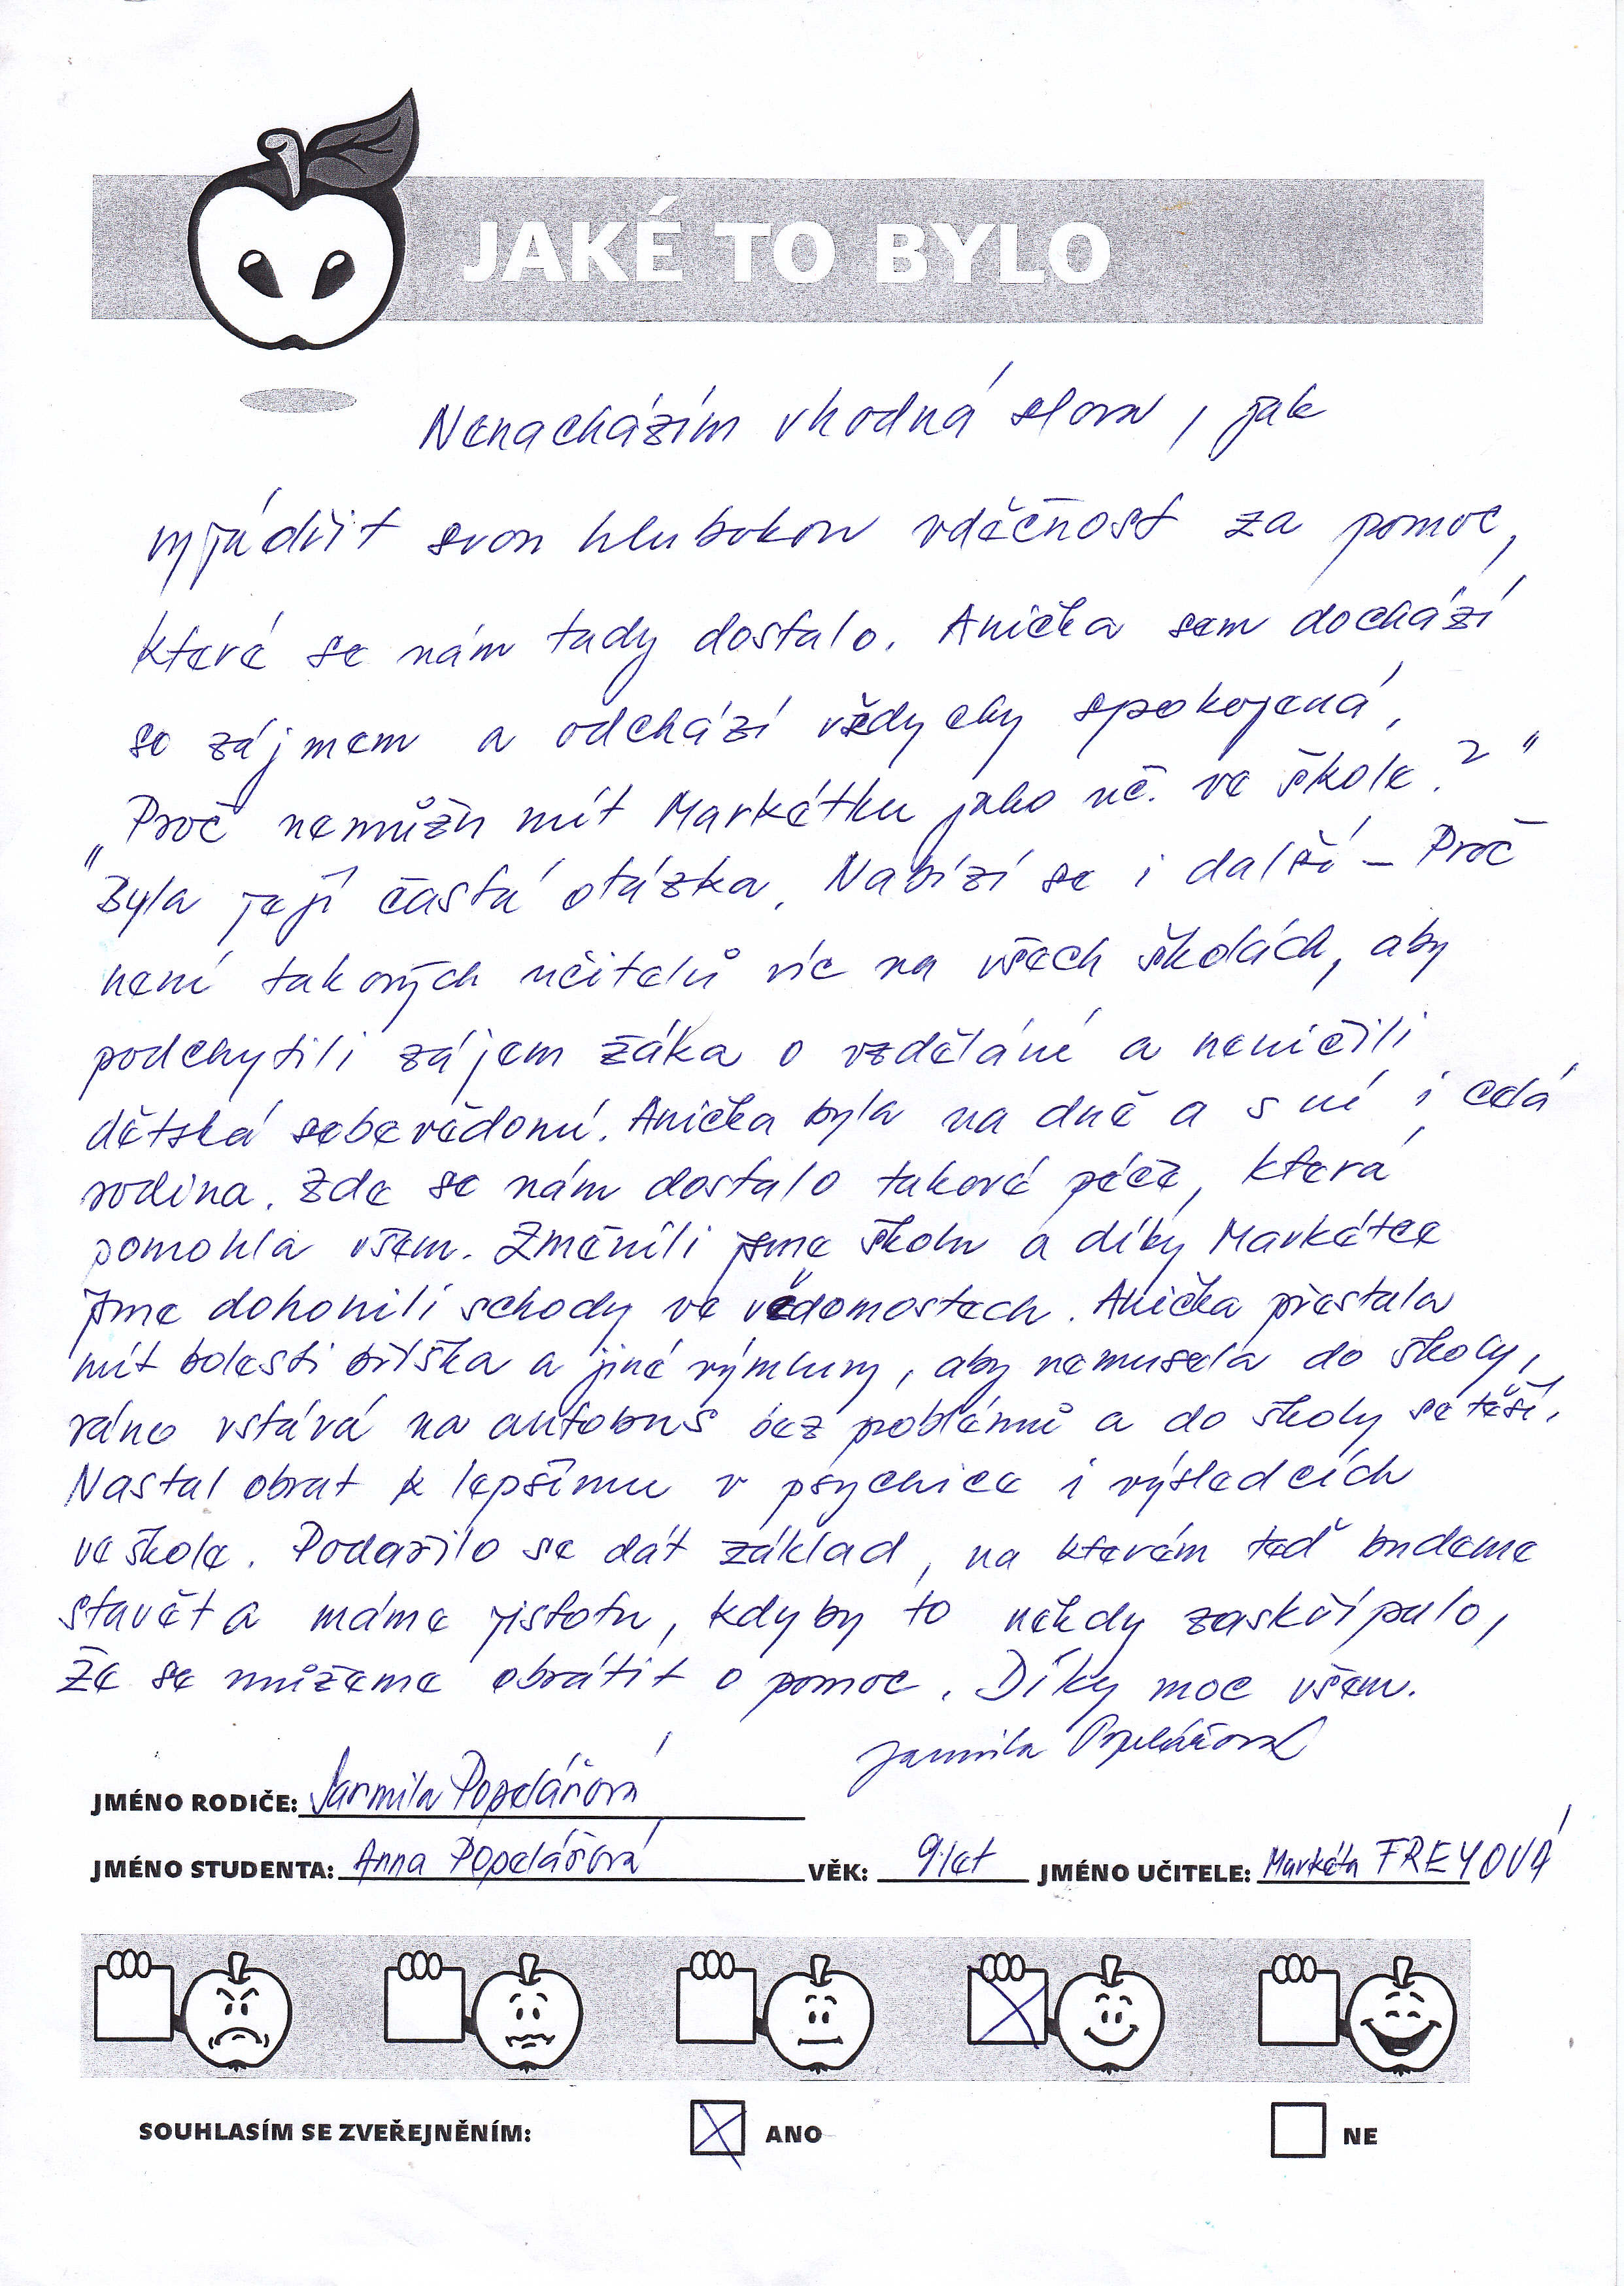 JAKÉ TO BYLO
Nenacházím vhodná slova, jak
vyjádřit svou hlubokou vděčnost za pomoc,
které se nám tady dostalo. Anička sem dochází
se zájmem a odchází vždycky spokojená,
"Proč nemůžu mít Markétku jako uč. ve škole?"
Byla její častá otázka. Nabízí se i další – Proč
není takových učitelů víc na všech školách, aby
podchytili zájem žáka o vzdělání a neničili
dětská sebevědomí. Anička byla na dně a s ní i celá
rodina. Zde se nám dostalo takové péče, která
pomohla všem. Změnili jsme školu a díky Markétce
jsme dohonili schody ve vědomostech. Anička přestala
mít bolesti bříška a jiné výmluvy, aby nemusela do školy,
ráno vstává na autobus bez problémů a do školy se těší.
Nastal obrat k lepšímu v psychice i výsledcích
ve škole. Podařilo se dát základ, na kterém teď budeme
stavět a máme jistotu, kdyby to někdy zaskřípalo,
že se můžeme obrátit o pomoc. Díky moc všem.
Jarmila Popelářová
JMÉNO RODIČE: Jarmila Popelářová
JMÉNO STUDENTA: Anna Popelářová VĚK: 9 let JMÉNO UČITELE: Markéta FREYOVÁ
SOUHLASÍM SE ZVEŘEJNĚNÍM: ANO NE